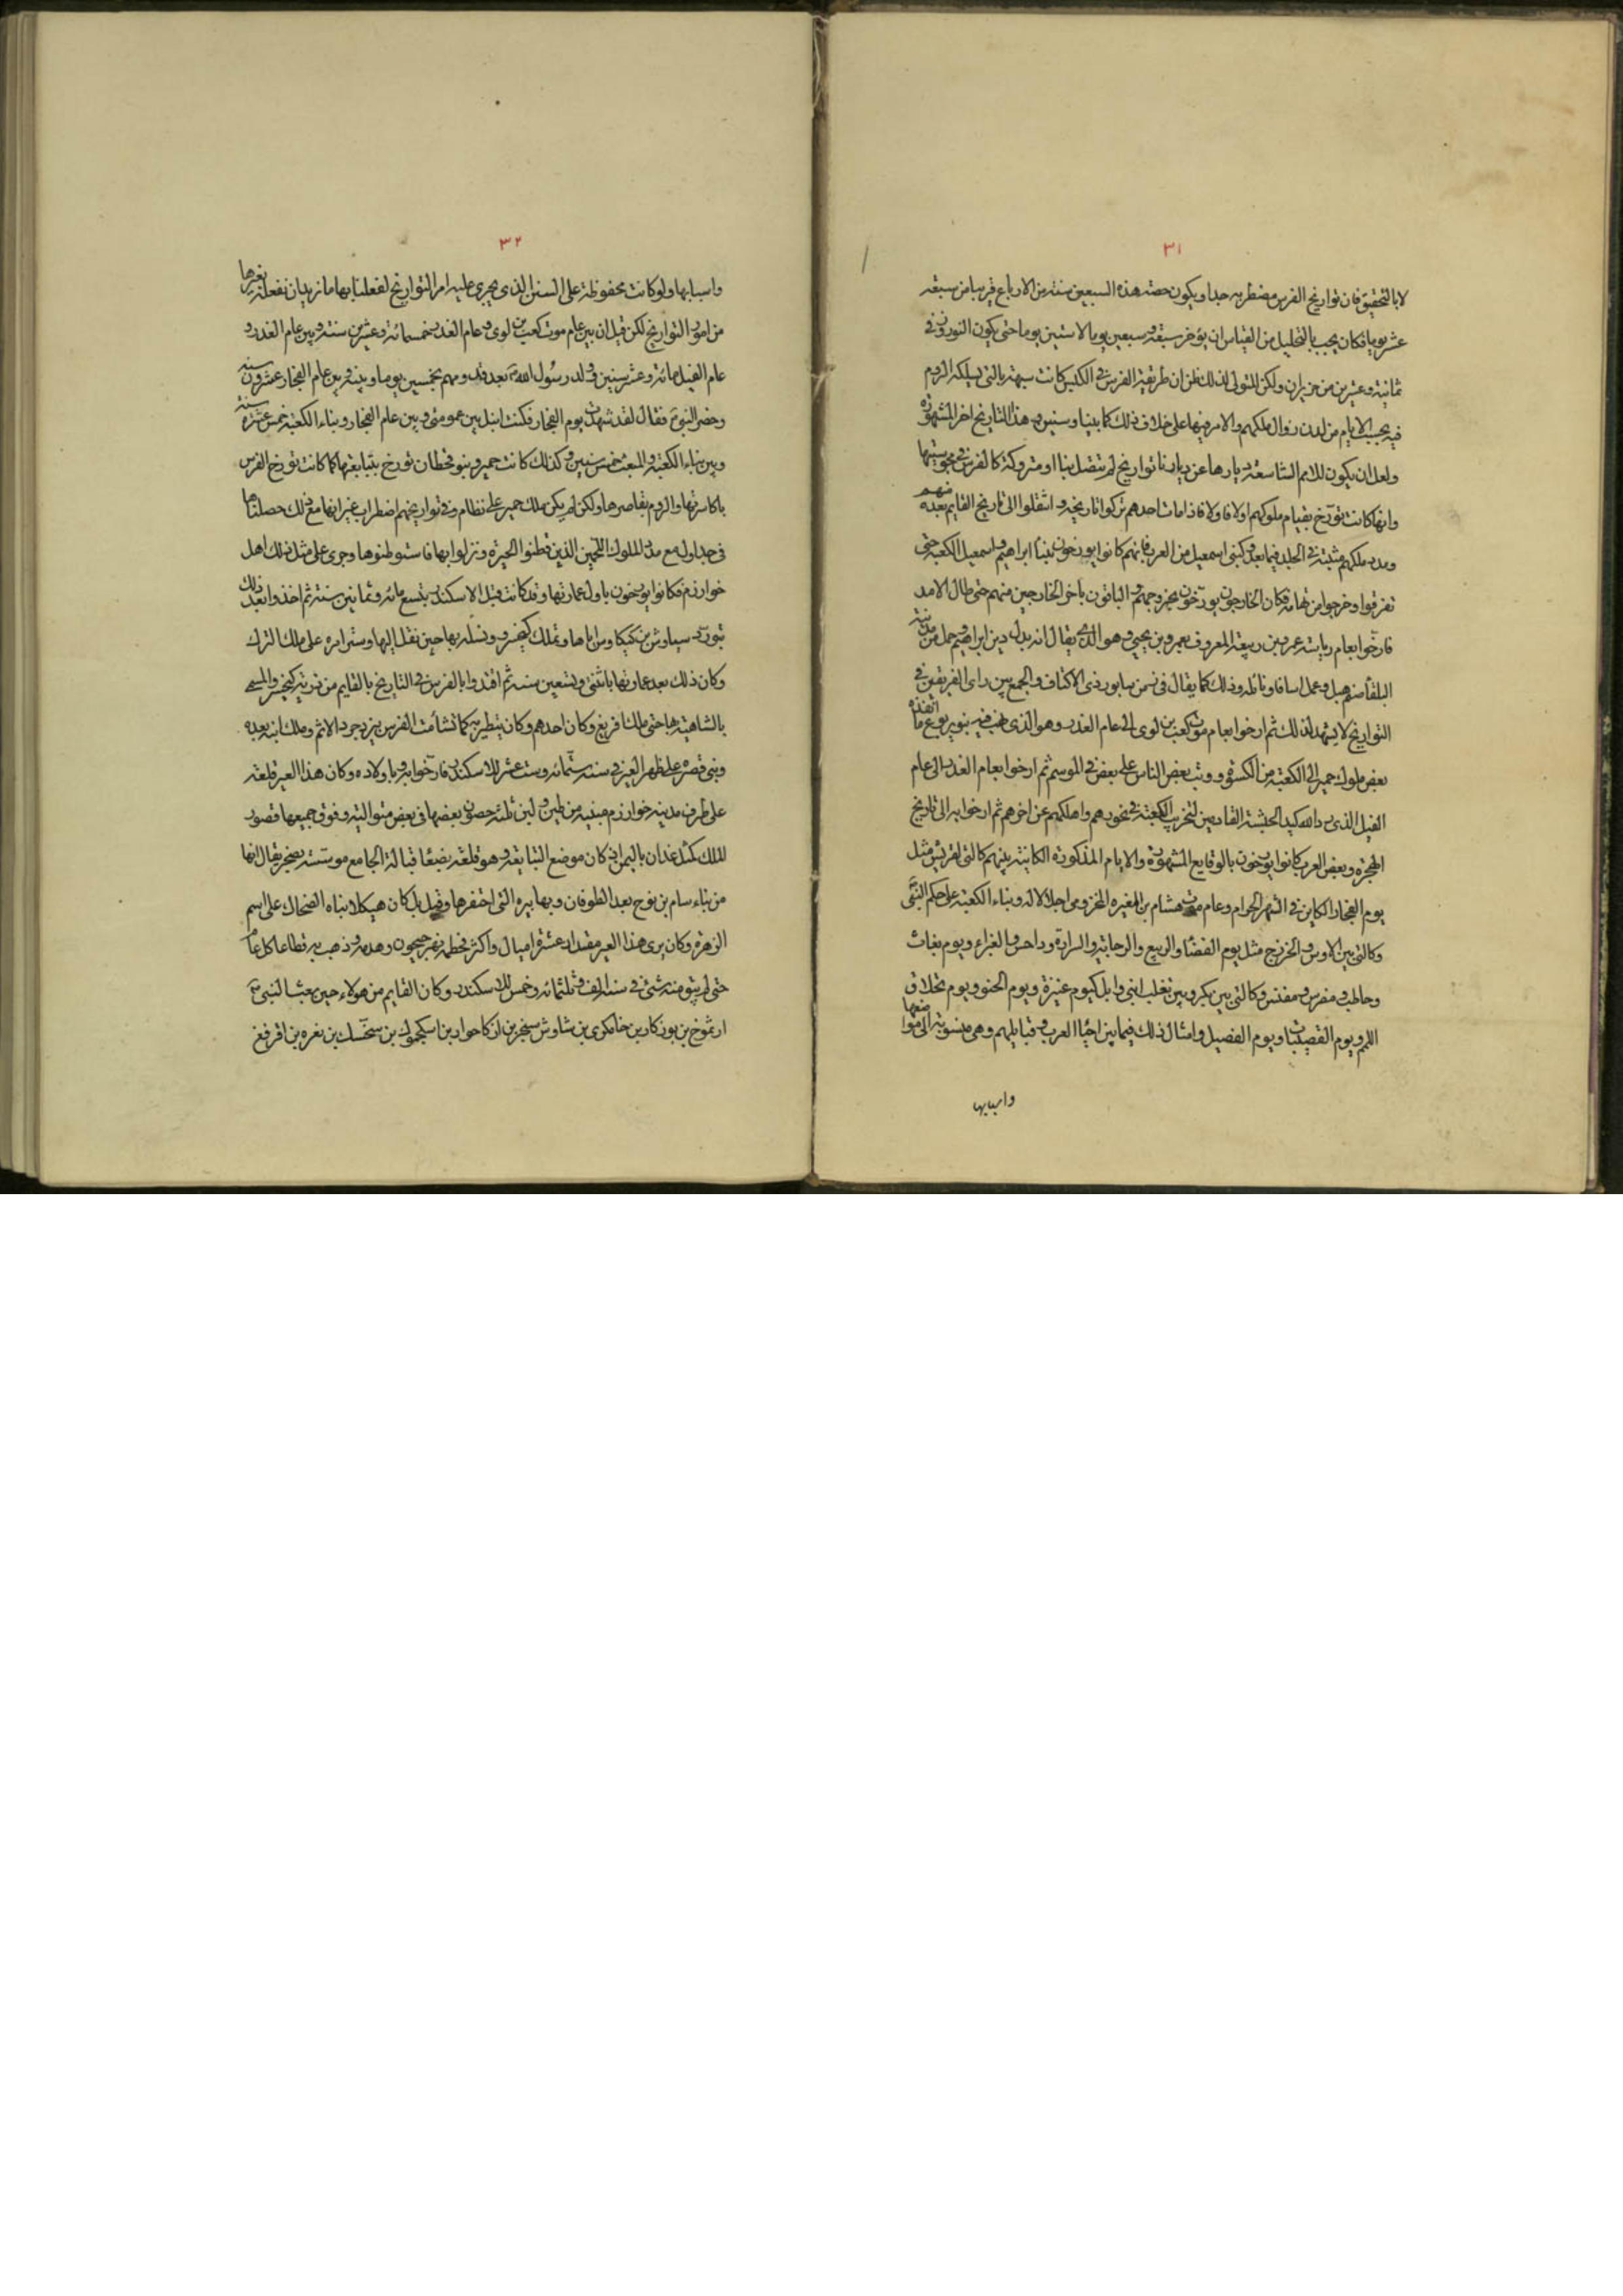 ٣١
لا بالتحقيق فان تواريخ الفرس مضطربه جدا ويكون حصته هذه السبعين سنة من الارباع قريبا من سبعة
عشر يوما فكان يجب بالتحليل من القياس ان يؤخر سبعة وسبعين يوما لا ستين يوما حتى يكون النوروز في
ثمانية وعشرين من حزيران ولكن المتولى لذلك ظن ان طريقة الفرس في الكبس كانت شبيهة بالتي يسلكه الروم
فيه بحسب الايام من لدن زوال ملكهم والامر فيها على خلاف ذلك كما بينا وسنبين وهذا التاريخ اخر المشهورة
ولعل ان يكون للامم الشاسعة ديارها عن ديارنا تواريخ لم تتصل بنا او متروكة كالفرس في مجوسيتها
وانها كانت تؤرخ بقيام ملوكهم اولا فاولا فاذا مات احدهم تركوا تاريخه وانتقلوا الى تاريخ القايم بعده منهم
ومدد ملكهم مثبتة في الجداول فيما بعد وكبني اسمعيل من العرب فانهم كانوا يورخون ببناء ابراهيم واسمعيل الكعبة حتى
تفرقوا وخرجوا من تهامة فكان الخارجون يورخون بخروجهم والباقون باخر الخارجين منهم حتى طال الامد
فارخوا بعام رياسة عمرو بن ربيعة المعروف بعمرو بن يحيى وهو الذي يقال انه بدل دين ابراهيم وحمل من مدينة
البلقاء صنم هبل وعمل اسافا ونايلة وذلك كما يقال في زمن سابور ذي الاكتاف والجمع بين راي الفريقين في
التواريخ لا يشهد لذلك ثم ارخوا بعام موت كعب بن لوى الى عام الغدر وهو الذي نهب فيه بنو يربوع ما انفذه
بعض ملوك حمير الى الكعبة من الكسوة ووثب بعض الناس على بعض في الموسم ثم ارخوا بعام الغدر الى عام
الفيل الذي رد الله كيد الحبشة القادمين لتخريب الكعبة في نحورهم واهلكهم عن اخرهم ثم ارخوا به الى تاريخ
الهجرة وبعض العرب كانوا يورخون بالوقايع المشهورة والايام المذكورة الكاينة بينهم كالتي لقريش مثل
يوم الفجار الكاين في الشهر الحرام وعام موت هشام بن المغيره المخزومي اجلالا له وبناء الكعبة على حكم النبي
وكالتي بين الاوس والخزرج مثل يوم الفضا والربيع والرحابة والسرارة وداحس والغبراء ويوم بغاث
وحاطب ومضرس ومعبس وكالتي بين بكر وبين تغلب ابني وايل كيوم عنيزة ويوم الحنو ويوم تحلاق
اللمم ويوم القصيبات ويوم الفصيل وامثال ذلك فيما بين احياء العرب وقبايلهم وهي منسوبة الى مواضعها
واسبابها
٣٢
واسبابها ولو كانت محفوظة على السنن الذي يجري عليه امر التواريخ لفعلنا بها ما نريد ان نفعله بغيرها
من امور التواريخ لكن قيل ان بين عام موت كعب بن لوى وعام الغدر خمسمائه وعشرين سنة وبين عام الغدر و
عام الفيل مائة وعشر سنين وولد رسول الله بعد قدومهم بخمسين يوما وبينه وبين عام الفجار عشرون سنة
وحضر النبي فقال لقد شهدت يوم الفجار فكنت انبل بين عمومتي وبين عام الفجار وبناء الكعبة خمس عشرة سنة
وبين بناء الكعبة والمبعث خمس سنين وكذلك كانت حمير وبنو قحطان تورخ بتبابعتها كما كانت تورخ الفرس
باكاسرتها والروم بقياصرها ولكن لم يكن ملك حمير على نظام وفي تواريخهم اضطراب غير انها مع ذلك حصلناها
في جداول مع مدد الملوك اللخمين الذين قطنوا الحيرة ونزلوا بها فاستوطنوها وجرى على مثل ذلك اهل
خوارزم فكانوا يورخون باول عمارتها وقد كانت قبل الاسكندر بتسع مائه وثمانين سنة ثم اخذوا بعد ذلك
بتورد سياوش بن كيكاوس اياها وتملك كيخسرو ونسله بها حين نقل اليها وسير امره على ملك الترك
وكان ذلك بعد عمارتها باثنى وتسعين سنة ثم اقتدوا بالفرس في التاريخ بالقايم من ذرية كيخسرو المسمى
بالشاهية بها حتى ملك افريغ وكان احدهم وكان يتطير به كما تشأمت الفرس بيزدجرد الاثيم وملك ابنه بعده
وبنى قصره على ظهر الفير في سنة ستمائه وست عشر للاسكندر فارخوا به وباولاده وكان هذا الفير قلعة
على طرف مدينة خوارزم مبنيه من طين ولبن ثلثة حصون بعضها في بعض متوالية وفوق جميعها قصور
الملك كمثل غمدان باليمن اذ كان موضع التبابعة وهو قلعة بصنعا قبالة الجامع موسسة بصخر يقال انها
من بناء سام بن نوح بعد الطوفان وبها بيره التي احتفرها وقيل بل كان هيكلا بناه الضحاك على اسم
الزهرة وكان يرى هذا الفير مقدار عشرة اميال واكثر فحطمه نهر جيحون وهدمه وذهب به قطاعا كل عام
حتى لم يبق منه شئ في سنة الف وثلثمائه وخمس للاسكندر وكان القايم من هولاء حين بعث النبي
ارثموخ بن بوزكار بن خامكري بن شاوش بن سخر بن ازكاجوار بن اسكجموك بن سخسك بن بغره بن افريغ